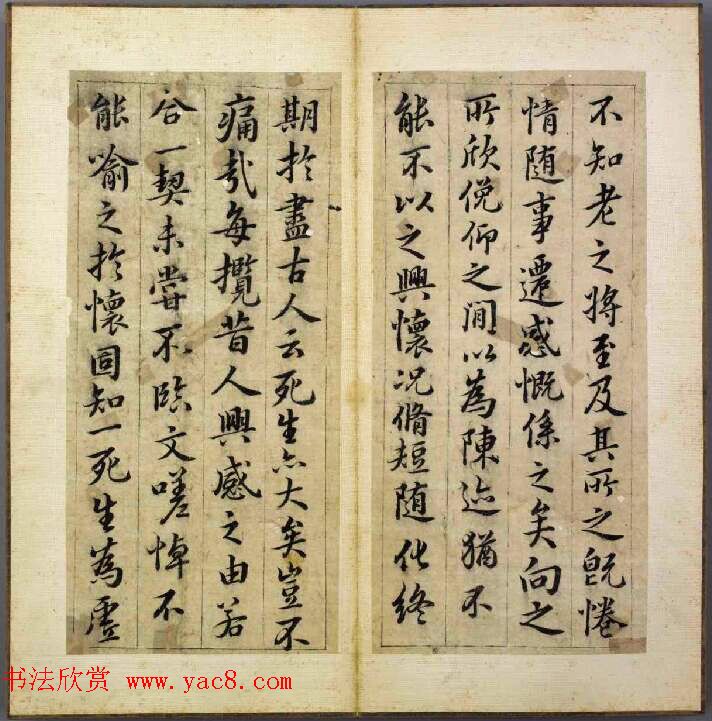 不知老之將至及其所之既惓
情随事遷感慨係之矣向之
所欣俛仰之間以為陳迹猶不
能不以之興懷况脩短随化終
期於盡古人云死生亦大矣豈不
痛哉每攬昔人興感之由若
合一契未嘗不臨文嗟悼不
能喻之於懷固知一死生為虛
书法欣赏 www.yac8.com